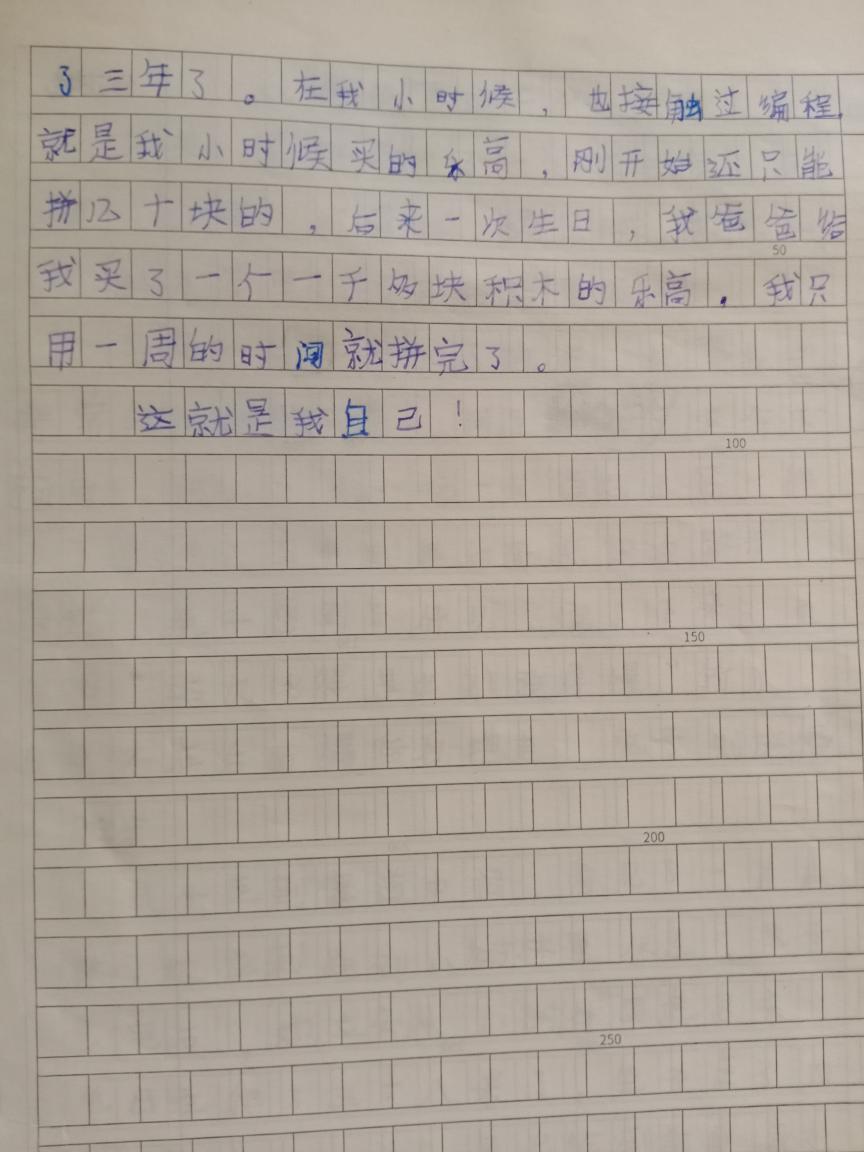 了三年了。在我小时候，也接触过编程，
就是我小时候买的乐高，刚开始还只能
拼几十块的，后来一次生日，我爸爸给
50
我买了一个一千多块积木的乐高，我只
用一周的时间就拼完了。
这就是我自己！
100
150
200
250